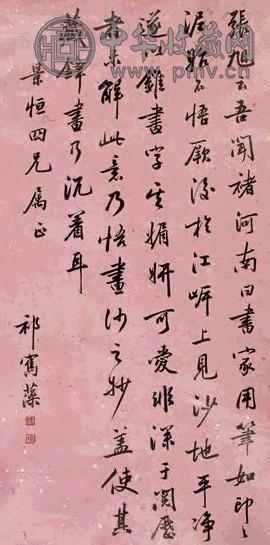 中华收藏网
www.pmv.cn
張旭云吾聞褚河南曰書家用筆如印〻
泥始不悟厥後於江岸上見沙地平净
遂以錐畫字其媚妍可愛非深于閱歷
者未解此意乃悟畫沙之妙蓋使其
藏鋒畫乃沉着耳
景恒四兄属正
祁寯藻